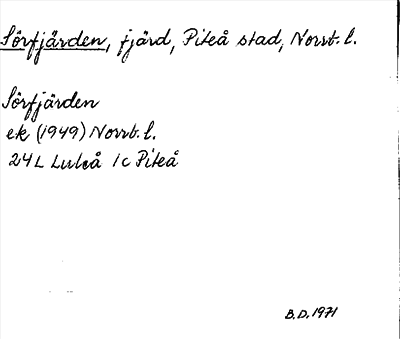 Sörfjärden, fjärd, Piteå stad, Norrb. l.
Sörfjärden
ek (1949) Norrb. l.
24L Luleå 1c Piteå
B.D. 1971